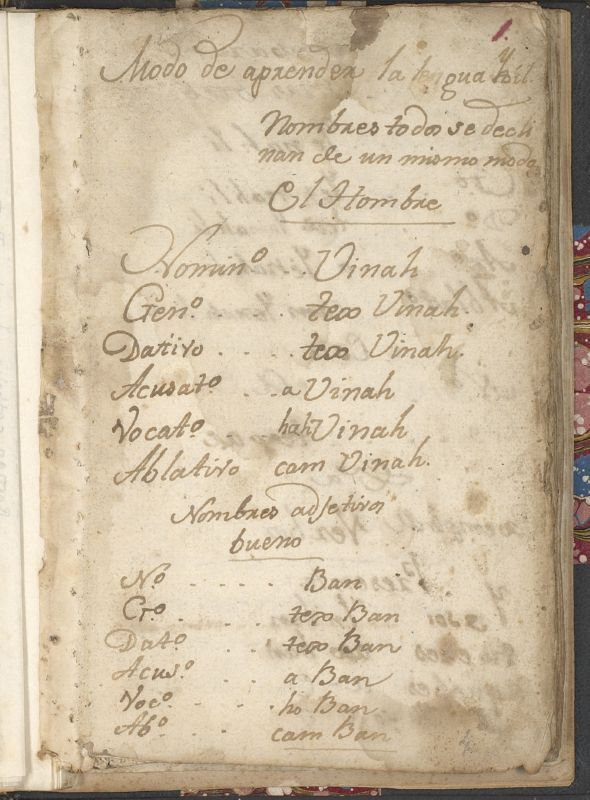 1.
Modo de aprender la lengua
Nombres todos se decli
nan de un mismo modo
El Hombre
Nomin.º Vinah
Gen.º texo Vinah
Dativo . . . . texo Vinah.
Acusat.º . . . a Vinah
Vocat.º hah Vinah
Ablativo cam Vinah.
Nombres adjetivos
bueno
N.º . . . . . Ban
G.º . . . . texo Ban
Dat.º . . . texo Ban
Acus.º . . . a Ban
Voc.º . . . . ho Ban
Ab.º . . . cam Ban